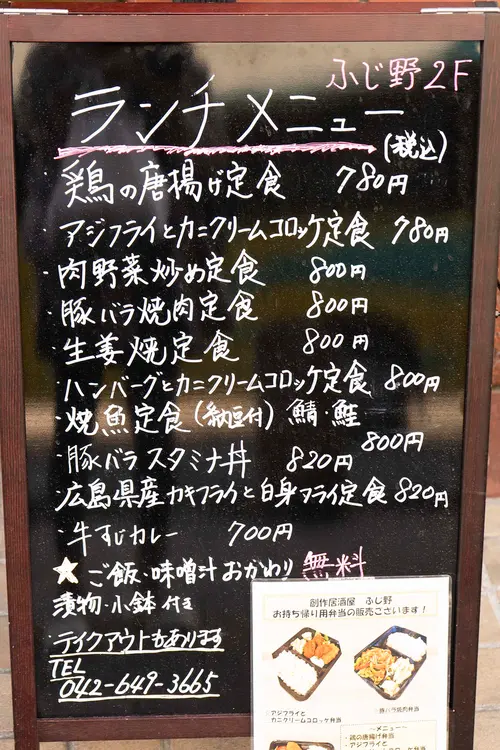 ふじ野2F
ランチメニュー
(税込)
・鶏の唐揚げ定食 780円
・アジフライとカニクリームコロッケ定食 780円
・肉野菜炒め定食 800円
・豚バラ焼肉定食 800円
・生姜焼定食 800円
・ハンバーグとカニクリームコロッケ定食 800円
・焼魚定食(納豆付) 鯖・鮭
800円
・豚バラスタミナ丼 820円
・広島県産カキフライと白身フライ定食 820円
・牛すじカレー 700円
★ご飯・味噌汁おかわり無料
漬物・小鉢付き
・テイクアウトもあります
TEL
042-649-3665
創作居酒屋 ふじ野
お持ち帰り用弁当の販売ございます!
①アジフライと
カニクリームコロッケ弁当
②豚バラ焼肉弁当
〜メニュー〜
・鶏の唐揚げ弁当
・アジフライと